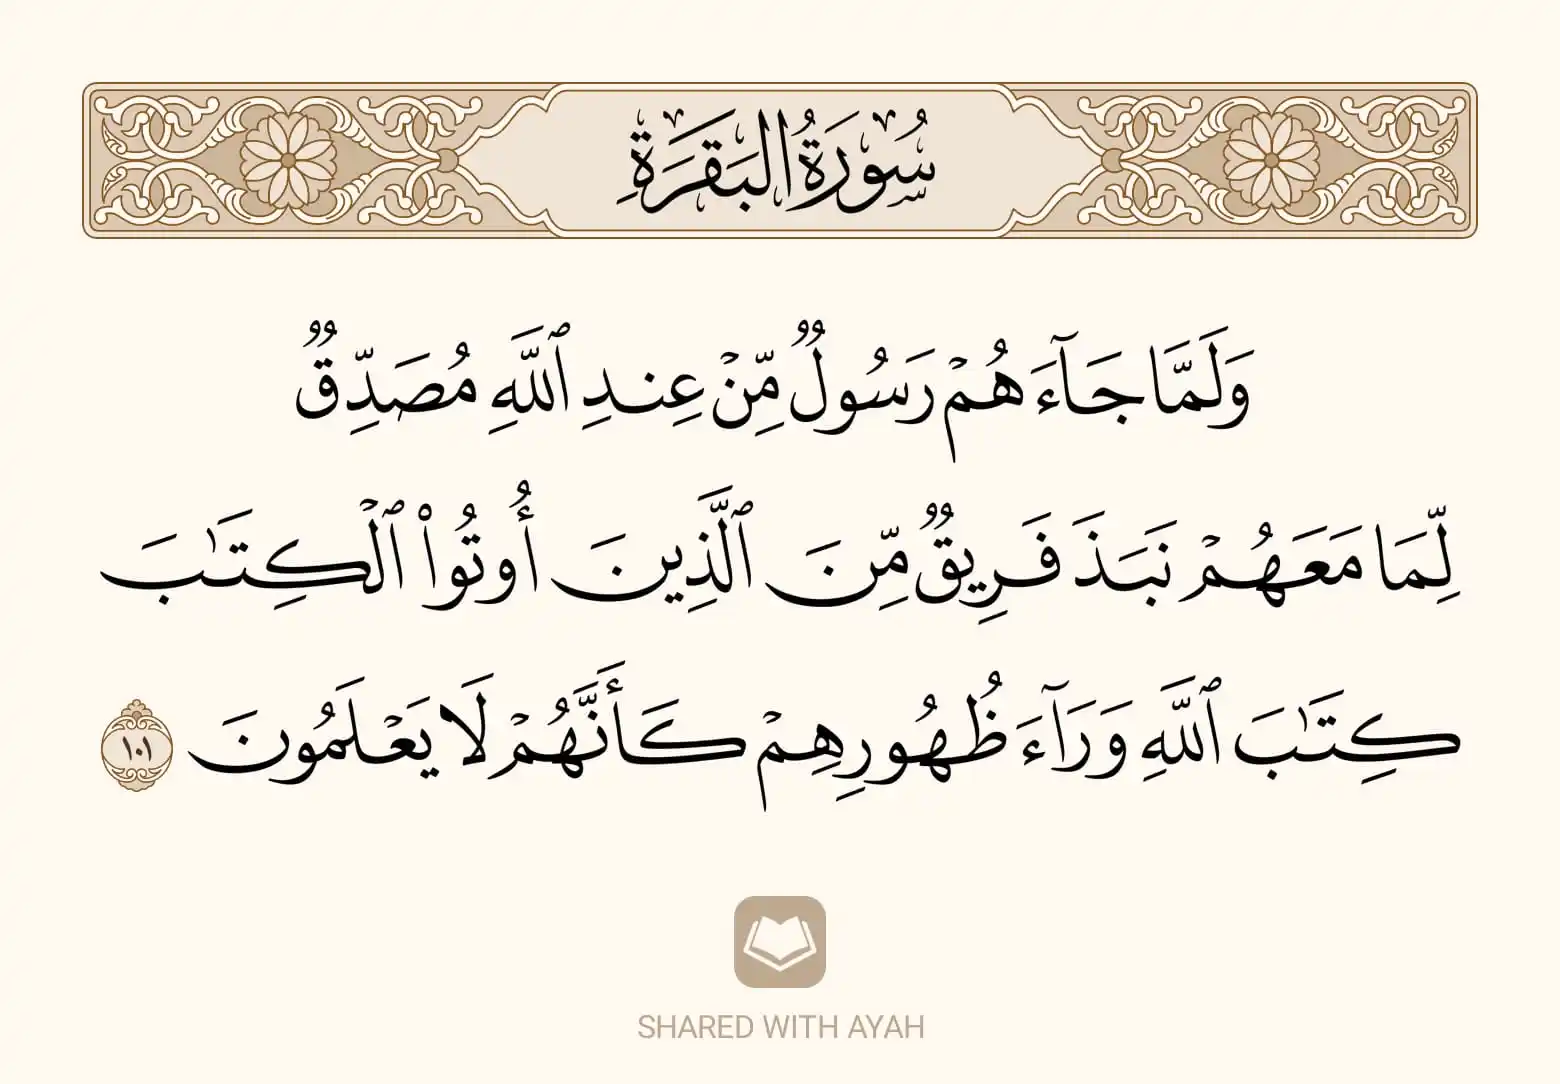 سُورَةُ البَقَرَةِ
وَلَمَّا جَآءَهُمۡ رَسُولٞ مِّنۡ عِندِ ٱللَّهِ مُصَدِّقٞ
لِّمَا مَعَهُمۡ نَبَذَ فَرِيقٞ مِّنَ ٱلَّذِينَ أُوتُواْ ٱلۡكِتَٰبَ
كِتَٰبَ ٱللَّهِ وَرَآءَ ظُهُورِهِمۡ كَأَنَّهُمۡ لَا يَعۡلَمُونَ ١٠١
SHARED WITH AYAH